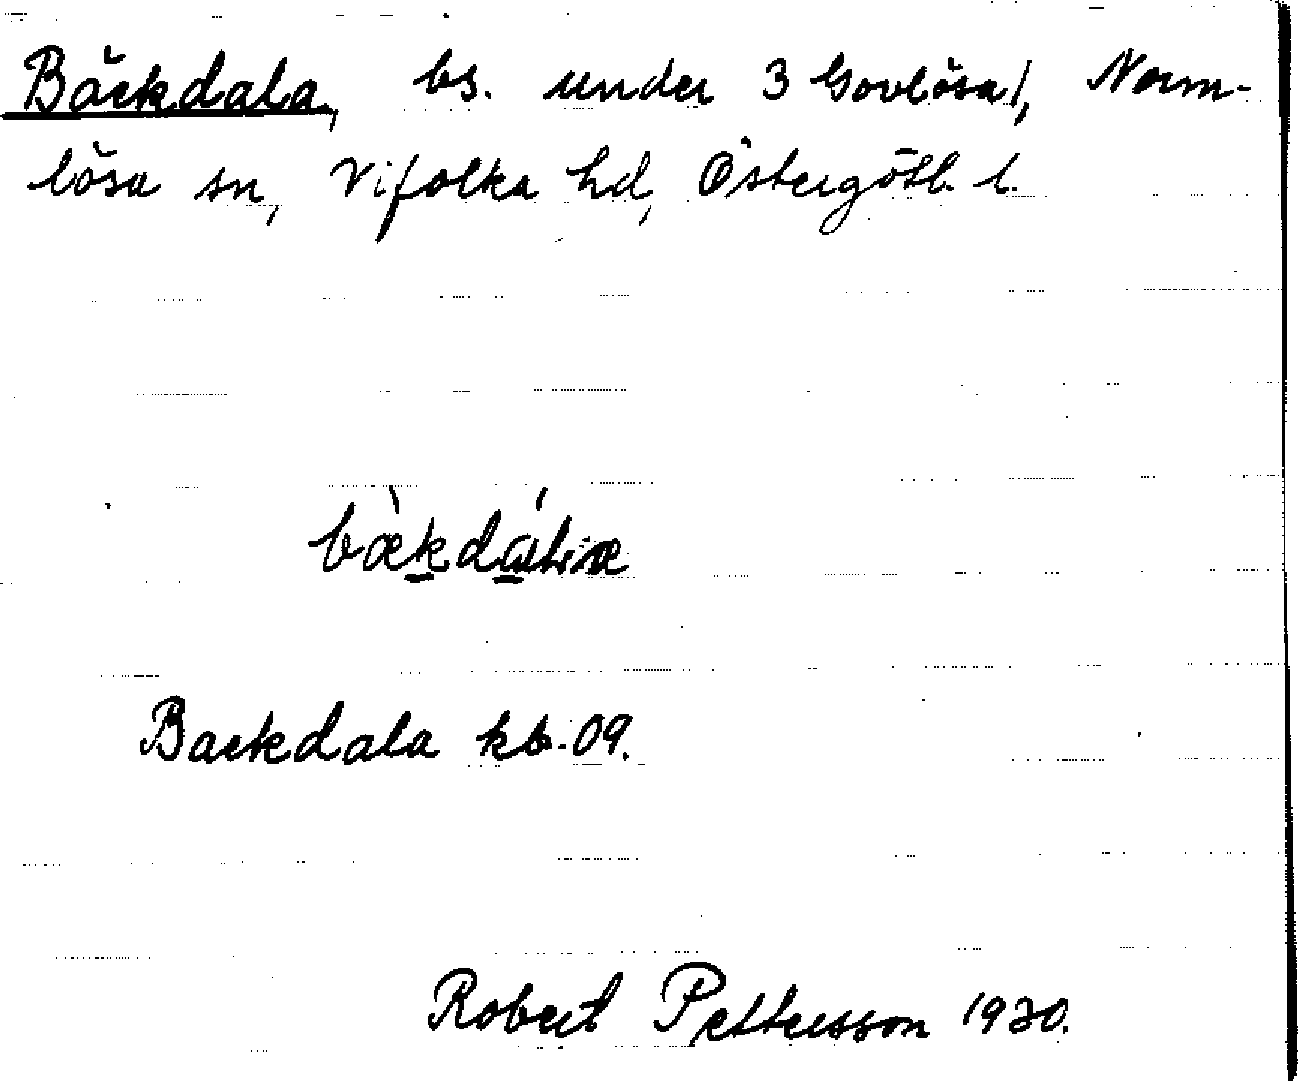 Bäckdala, bs. under 3 Govlösa/, Norm-
lösa sn, Vifolka hd, Östergötl. l.
Backdala kb. 09.
Robert Pettersson 1930.